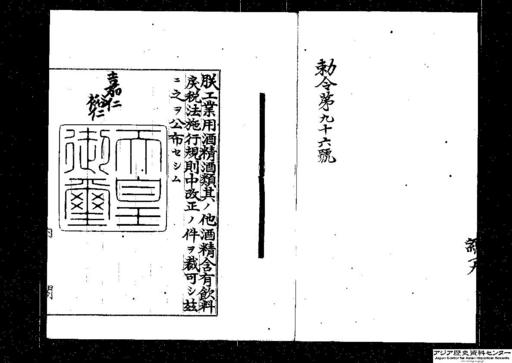 勅令第九十六號
朕工業用酒精酒類其ノ他酒精含有飲料
戻税法施行規則中改正ノ件ヲ裁可シ茲
ニ之ヲ公布セシム
嘉仁
裕仁
天皇
御璽
内閣
アジア歴史資料センター
Japan Center for Asian Historical Records